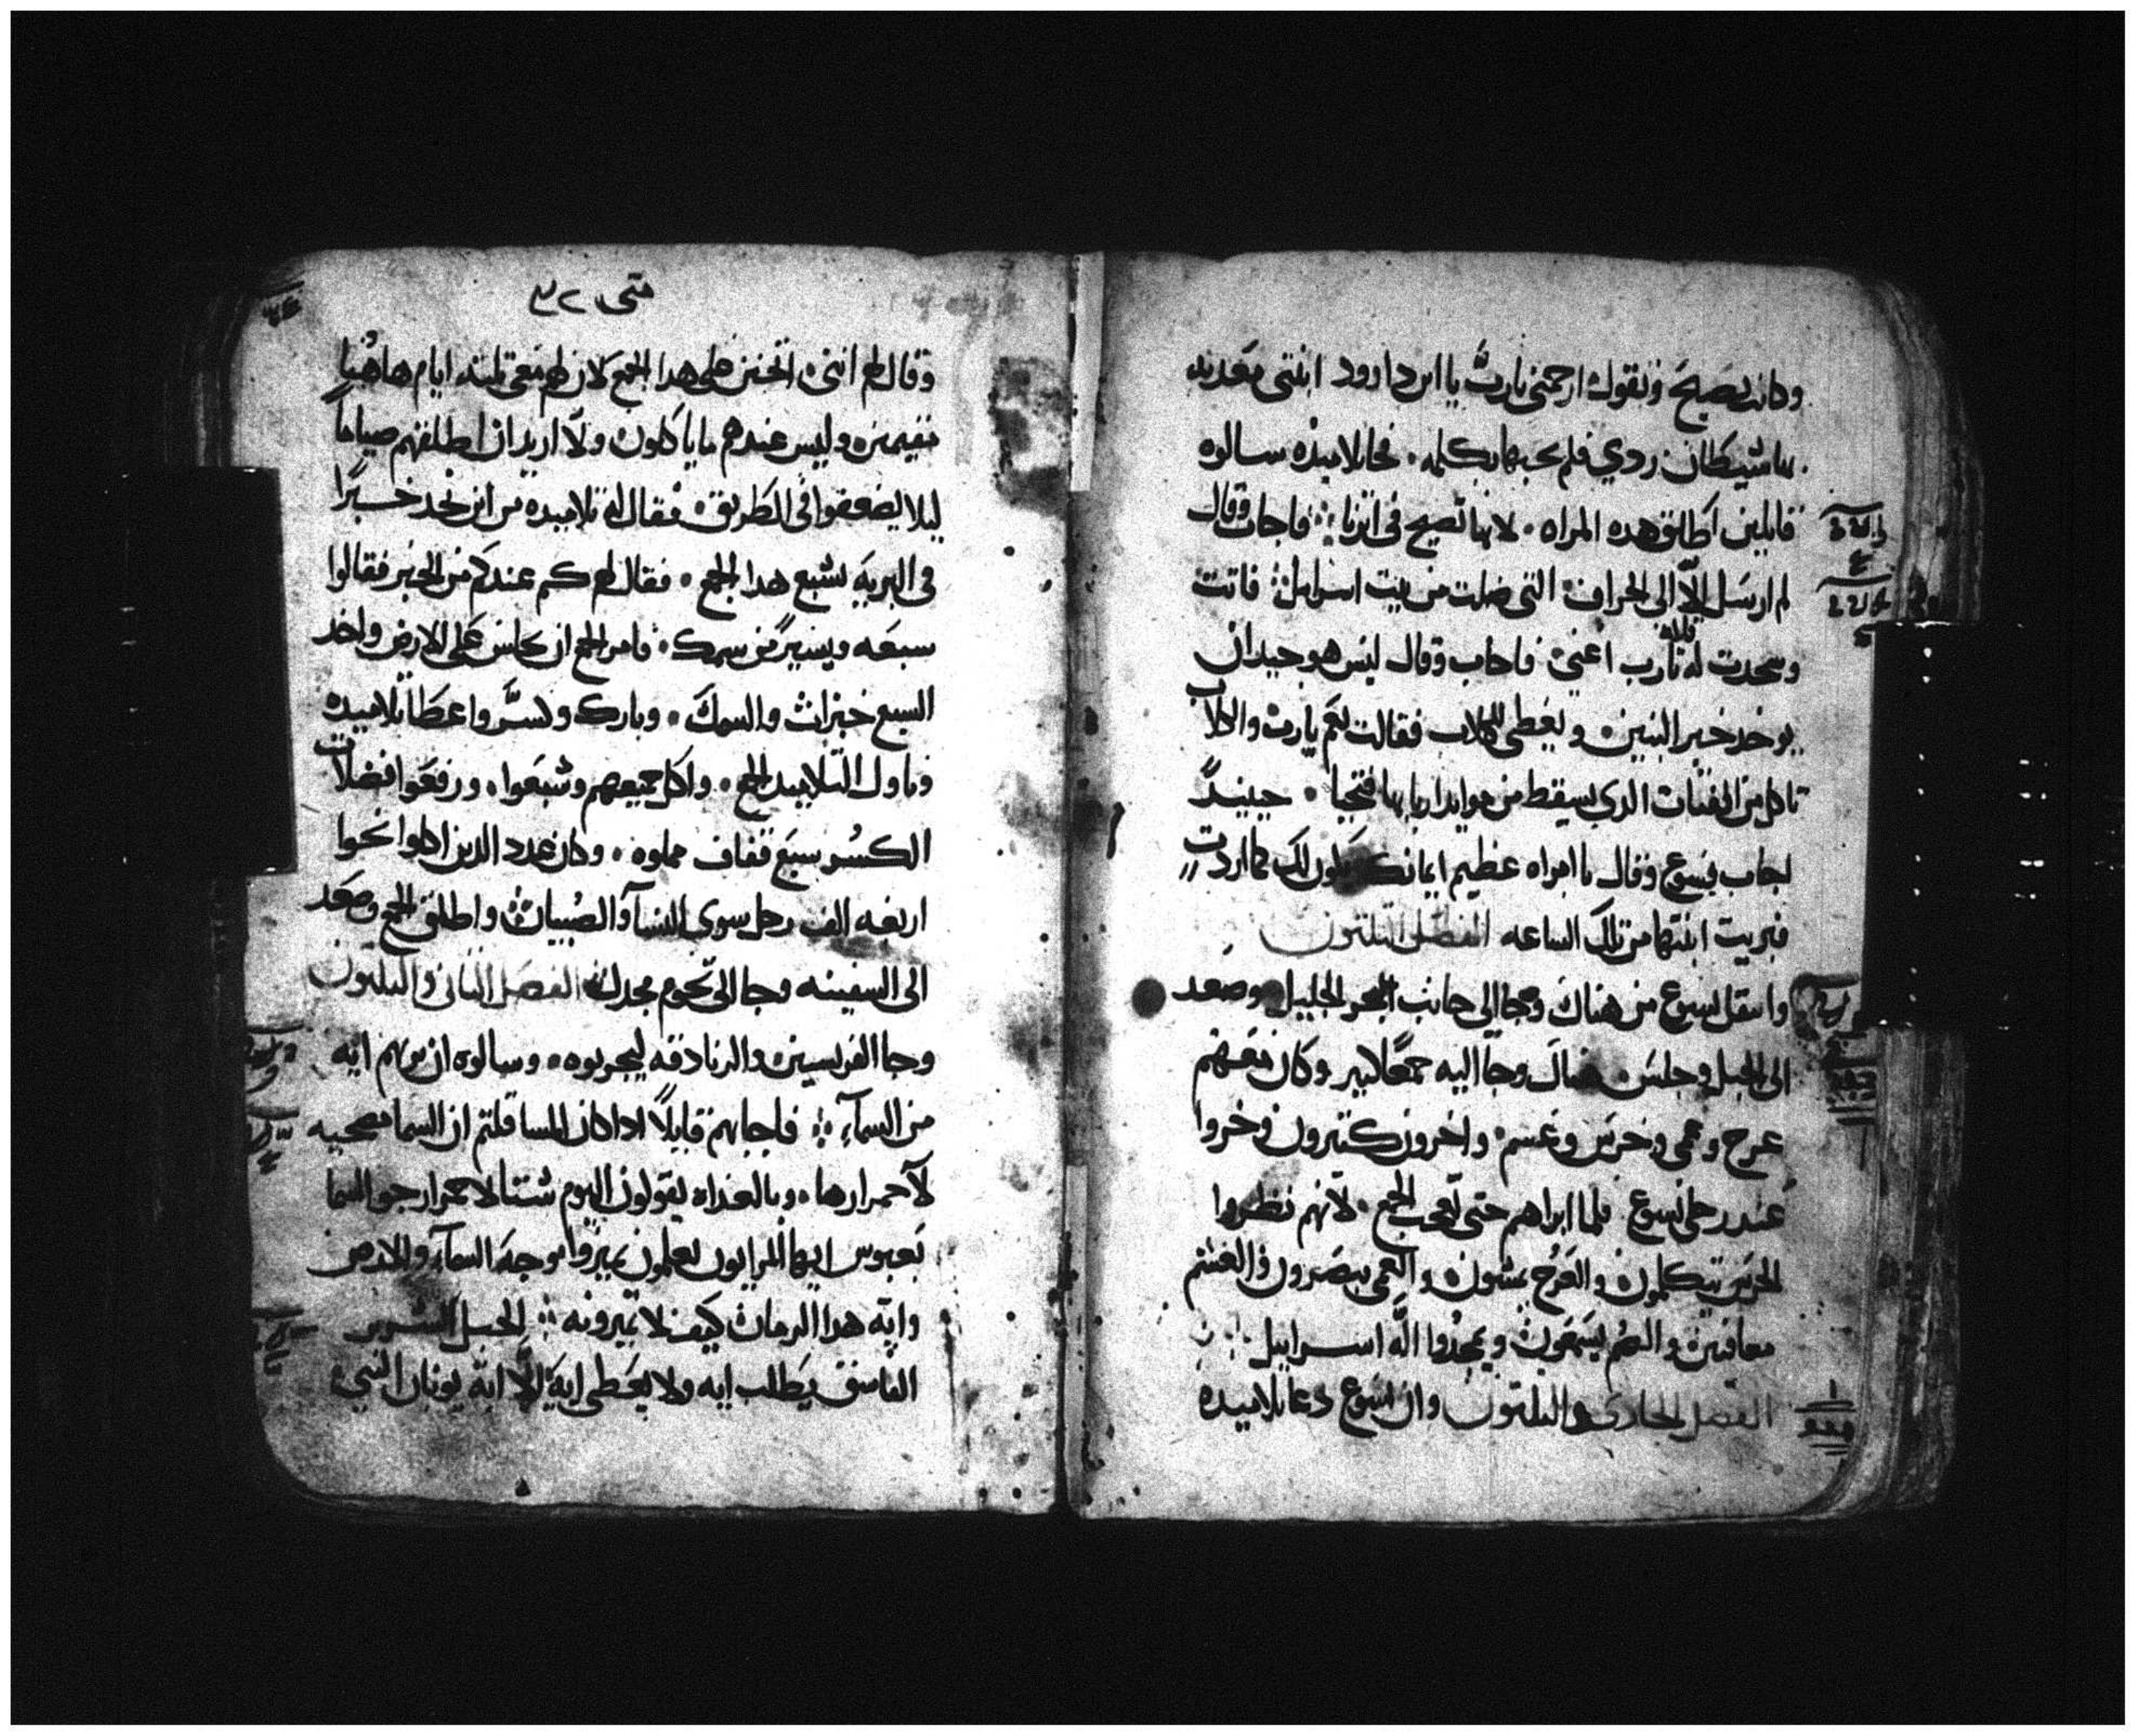 وكانت تصيح وتقول ارحمني يارب يا ابن داوود ابنتي معدبه
بها شيطان ردي فلم يجبها بكلمه. فجا تلاميذه سالوه
قايلين اطلق هده المراه. لانها تصيح في اثرنا فاجاب وقال
لم ارسل الا الى الخراف التي ضلت من بيت اسراييل فاتت
وسجدت له قايله يارب اعني فاجاب وقال ليس هو جيد ان
يوخد خبز البنين ويعطى للكلاب فقالت نعم يارب والكلاب
تاكل من الفتات الدي يسقط من موايد اربابها فتحيا. حينيدً
اجاب يسوع وقال يا امراه عظيم ايمانك يكون لك كما اردت
فبريت ابنتها من تلك الساعه الفصل التلتون
وانتقل يسوع من هناك وجا الى جانب البحر الجليل وصعد
الى الجبل وجلس هناك وجا اليه جمعًا كثير وكان معهم
عرج وعمي وخرس وعسم. واخرون كثيرون وخروا
عند رجلي يسوع فلما ابراهم حتى تعجب الجمع. لانهم نظروا
الخرس يتكلمون والعرج يمشون والعمي يبصرون والعسم
معافين والصم يسمعون ويمجدوا الله اسراييل
الفصل الحادي والتلتون وان يسوع دعا تلاميده
متى ٣٢
وقال لهم انني اتحنن على هدا الجمع لان لهم معي تلتة ايام هاهنا
مقيمين وليس عندهم ما ياكلون ولا اريد ان اطلقهم صياماً
ليلا يضعفوا في الطريق فقال له تلاميده من اين نجد خبزًا
في البريه نشبع هدا الجمع. فقال لهم كم عندكم من الخبز فقالوا
سبعه ويسيرً من سمك. فامر الجمع ان يجلس على الارض واخد
السبع خبزات والسمك. وبارك وكسر واعطا تلاميده
وناول التلاميد الجمع. واكل جميعهم وشبعوا. ورفعوا فضلات
الكسر سبع قفاف مملوه. وكان عدد الدين اكلوا نحوا
اربعه الف رجل سوى النسآ والصبيان واطلق الجمع وصعد
الى السفينه وجا الى تخوم مجدل الفصل التاني والتلتون
وجا الفريسين والزنادقه ليجربوه. وسالوه ان يريهم ايه
من السمآء فاجابهم قايلاً ادا كان المسا قلتم ان السما مصحيه
لاحمرارها. وبالغداه يقولون اليوم شتا لاحمرار جو السما
بعبوس ايها المرايون تعلمون تميزوا وجه السمآء والارض
وايه هدا الزمان كيف لا تميزونه الجيل الشرير
الفاسق يطلب ايه ولا يعطى ايه الا اية يونان النبي